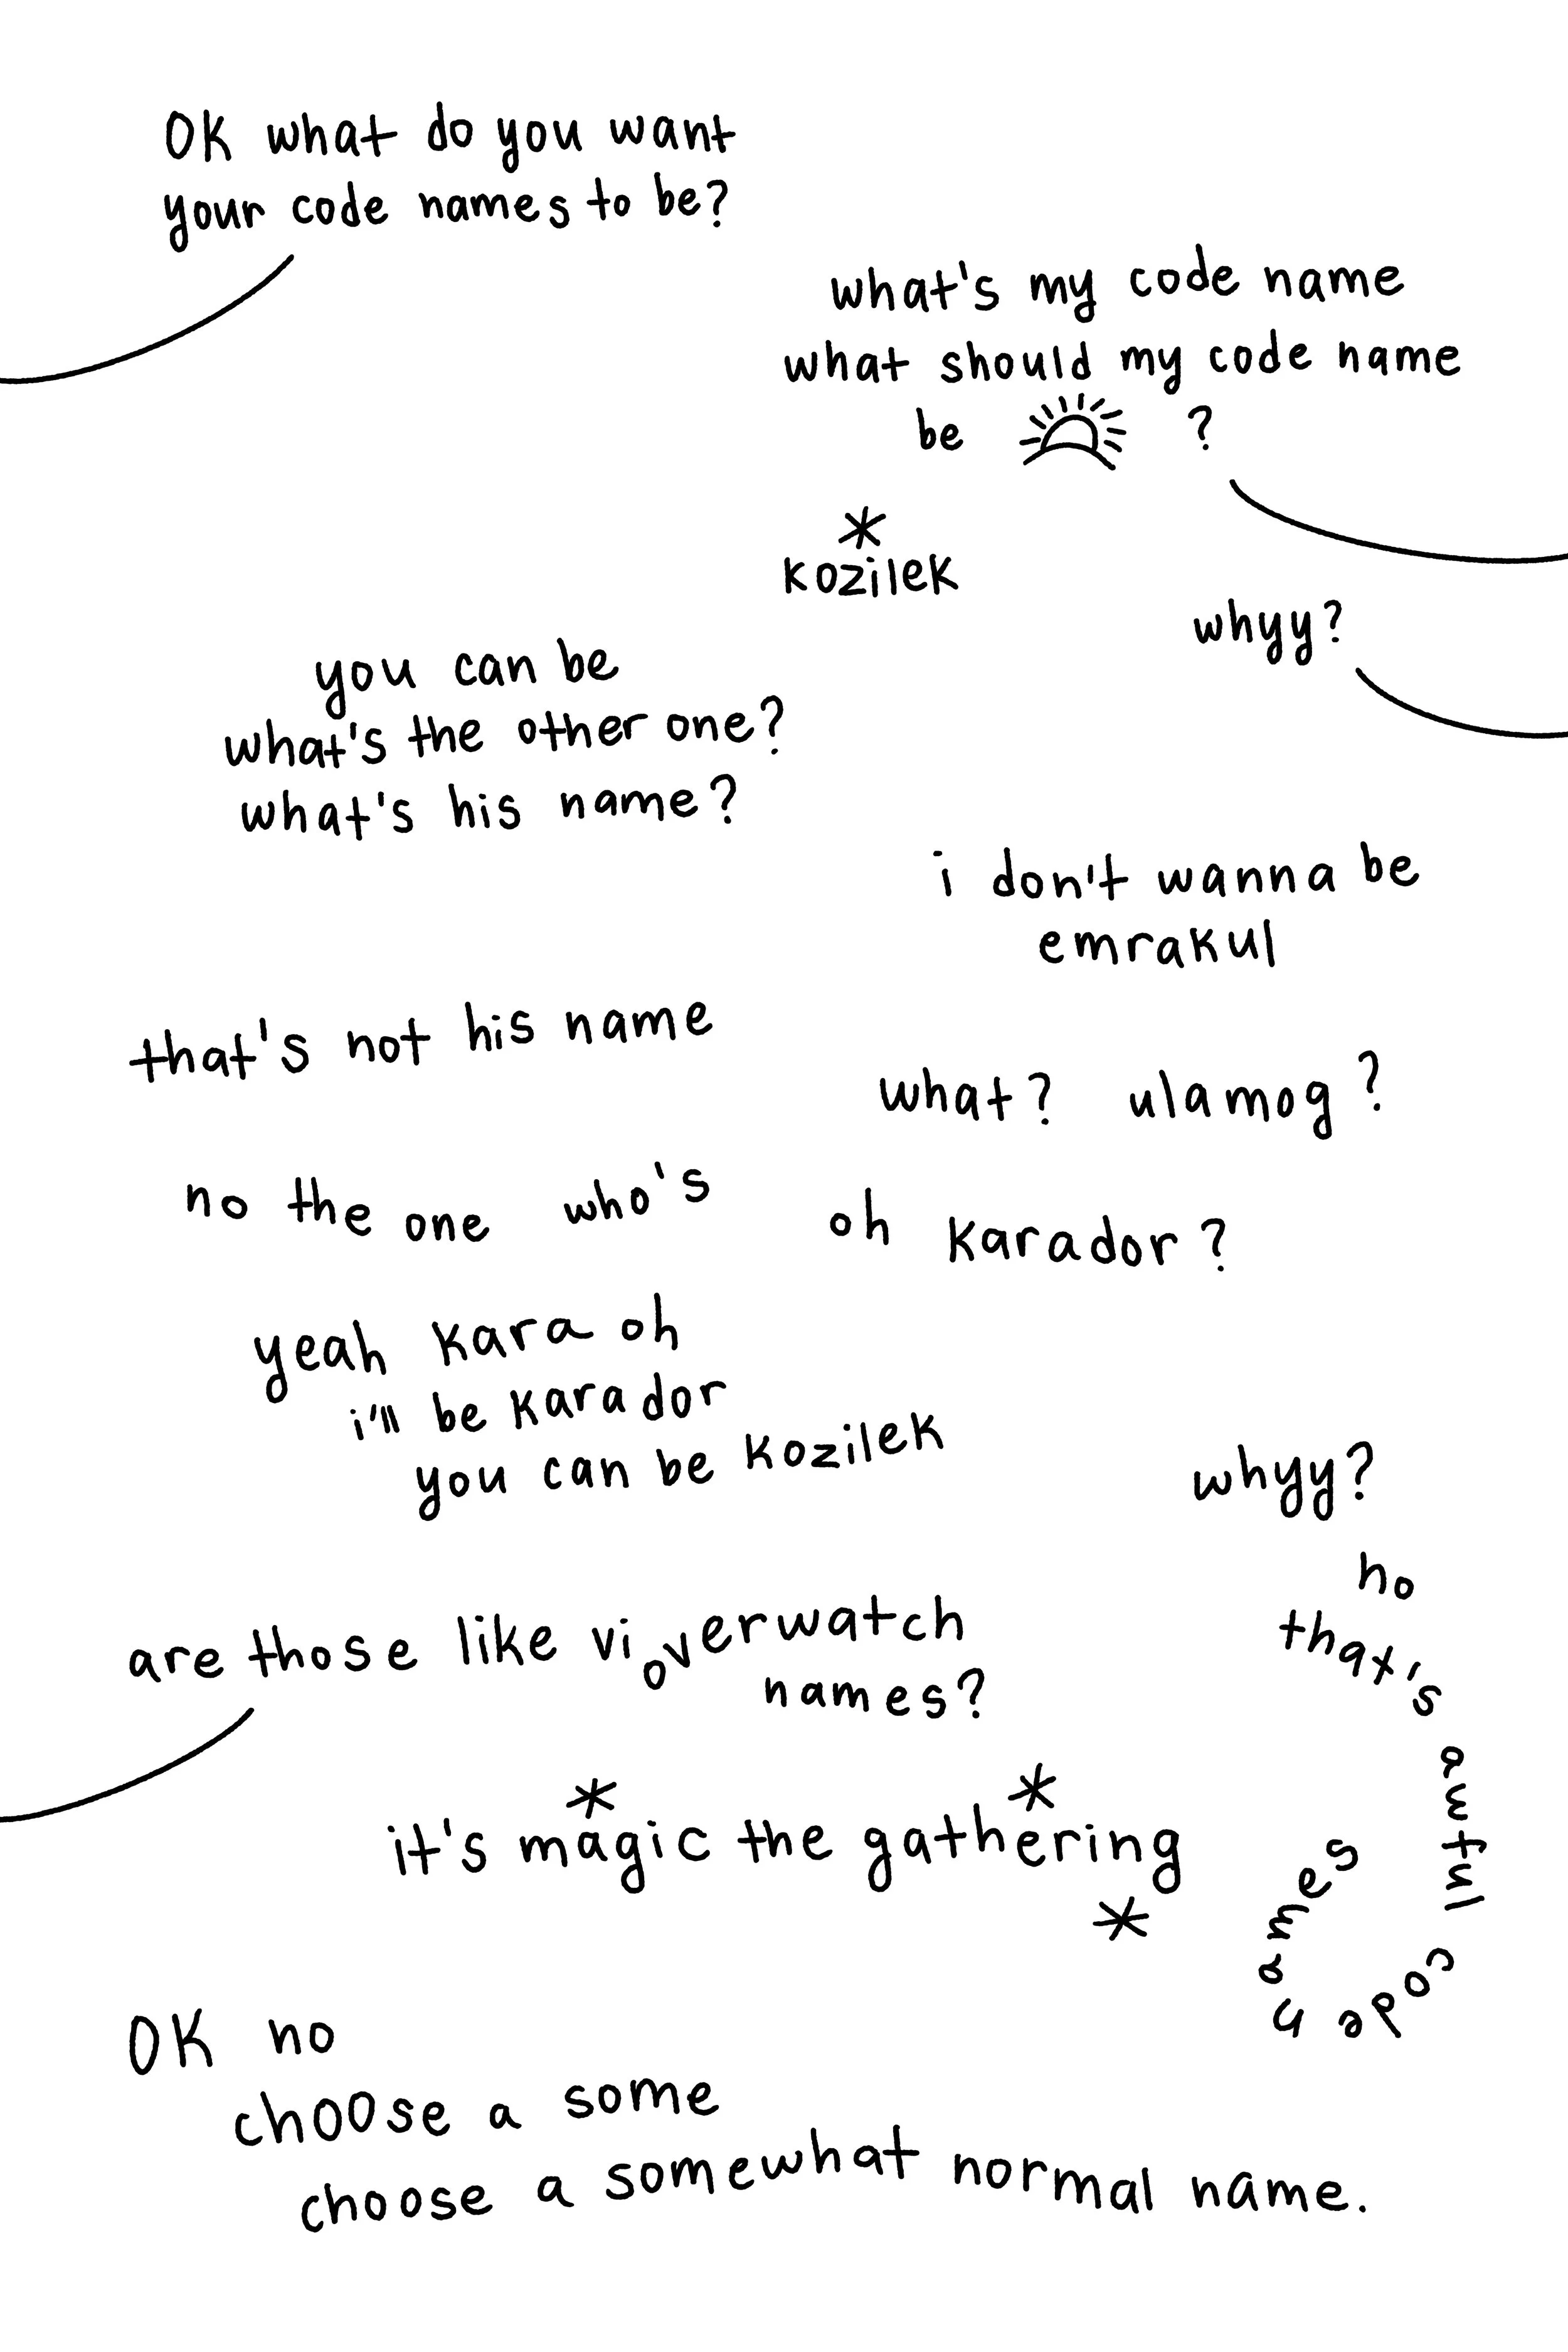 OK what do you want
your code names to be?
what's my code name
what should my code name
be ?
kozilek
whyy?
you can be
what's the other one?
what's his name?
i don't wanna be
emrakul
that's not his name
what? ulamog?
no the one who's
oh karador?
yeah kara oh
i'll be karador
you can be kozilek
whyy?
no
that's awful code names
are those like vi overwatch
names?
it's magic the gathering
OK no
choose a some
choose a somewhat normal name.